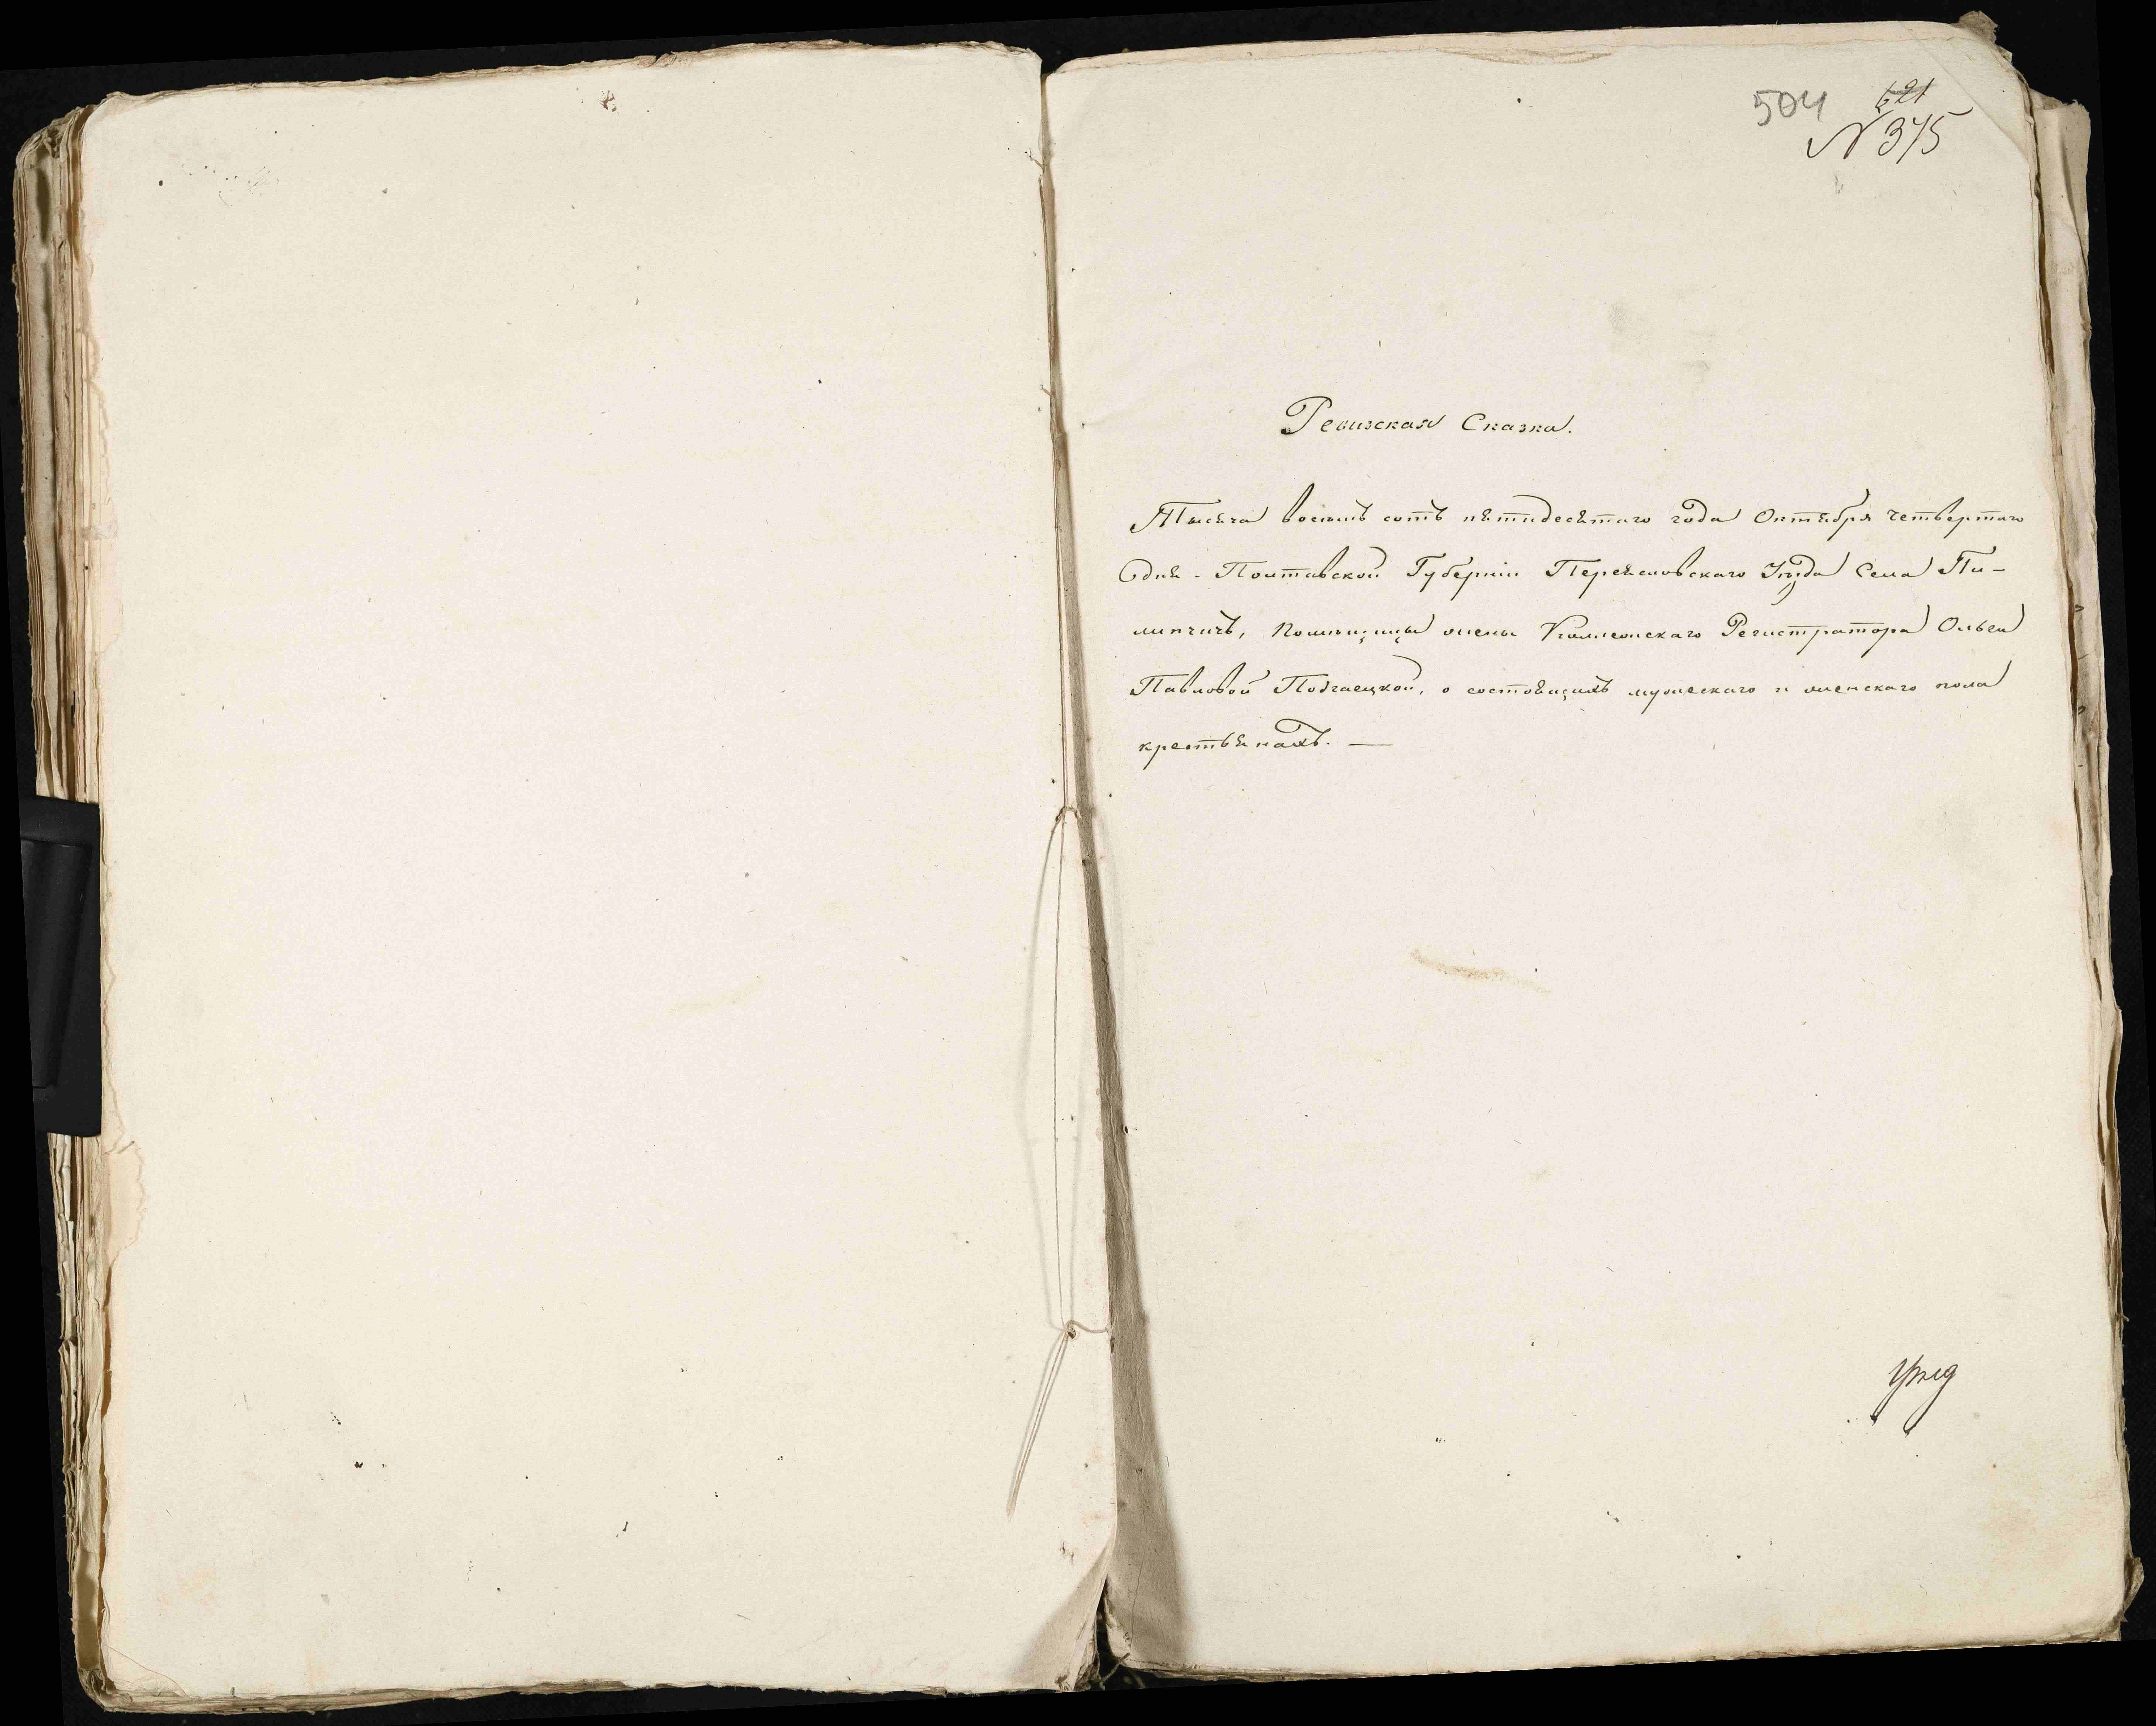 504 621
N 375
Ревизская Сказка.
Тысяча восемь сотъ пятидесятаго года Октября четвертаго
дня - Полтавской Губерніи Переясловскаго Уѣзда Села Пи-
липчичъ, Помѣщицы жены Коллежскаго Регистратора Ольги
Павловой Подгаецкой, о состоящихъ мужескаго и женскаго пола
крестьянахъ. —